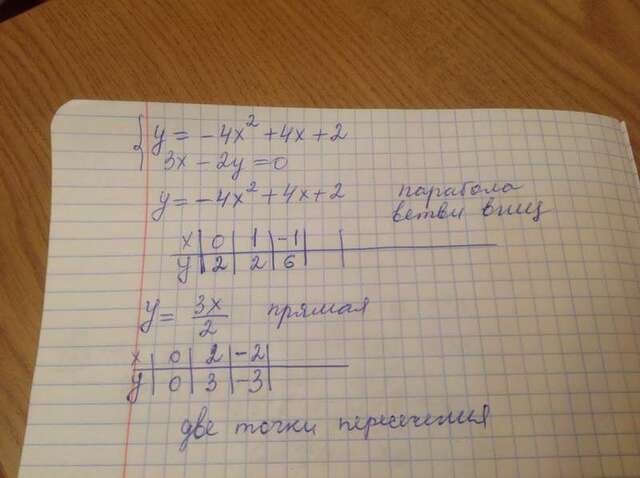 { y = -4x² + 4x + 2
3x - 2y = 0
y = -4x² + 4x + 2 парабола
ветви вниз
x | 0 | 1 | -1 |
y | 2 | 2 | 6 |
y = 3x/2 прямая
x | 0 | 2 | -2 |
y | 0 | 3 | -3 |
две точки пересечения